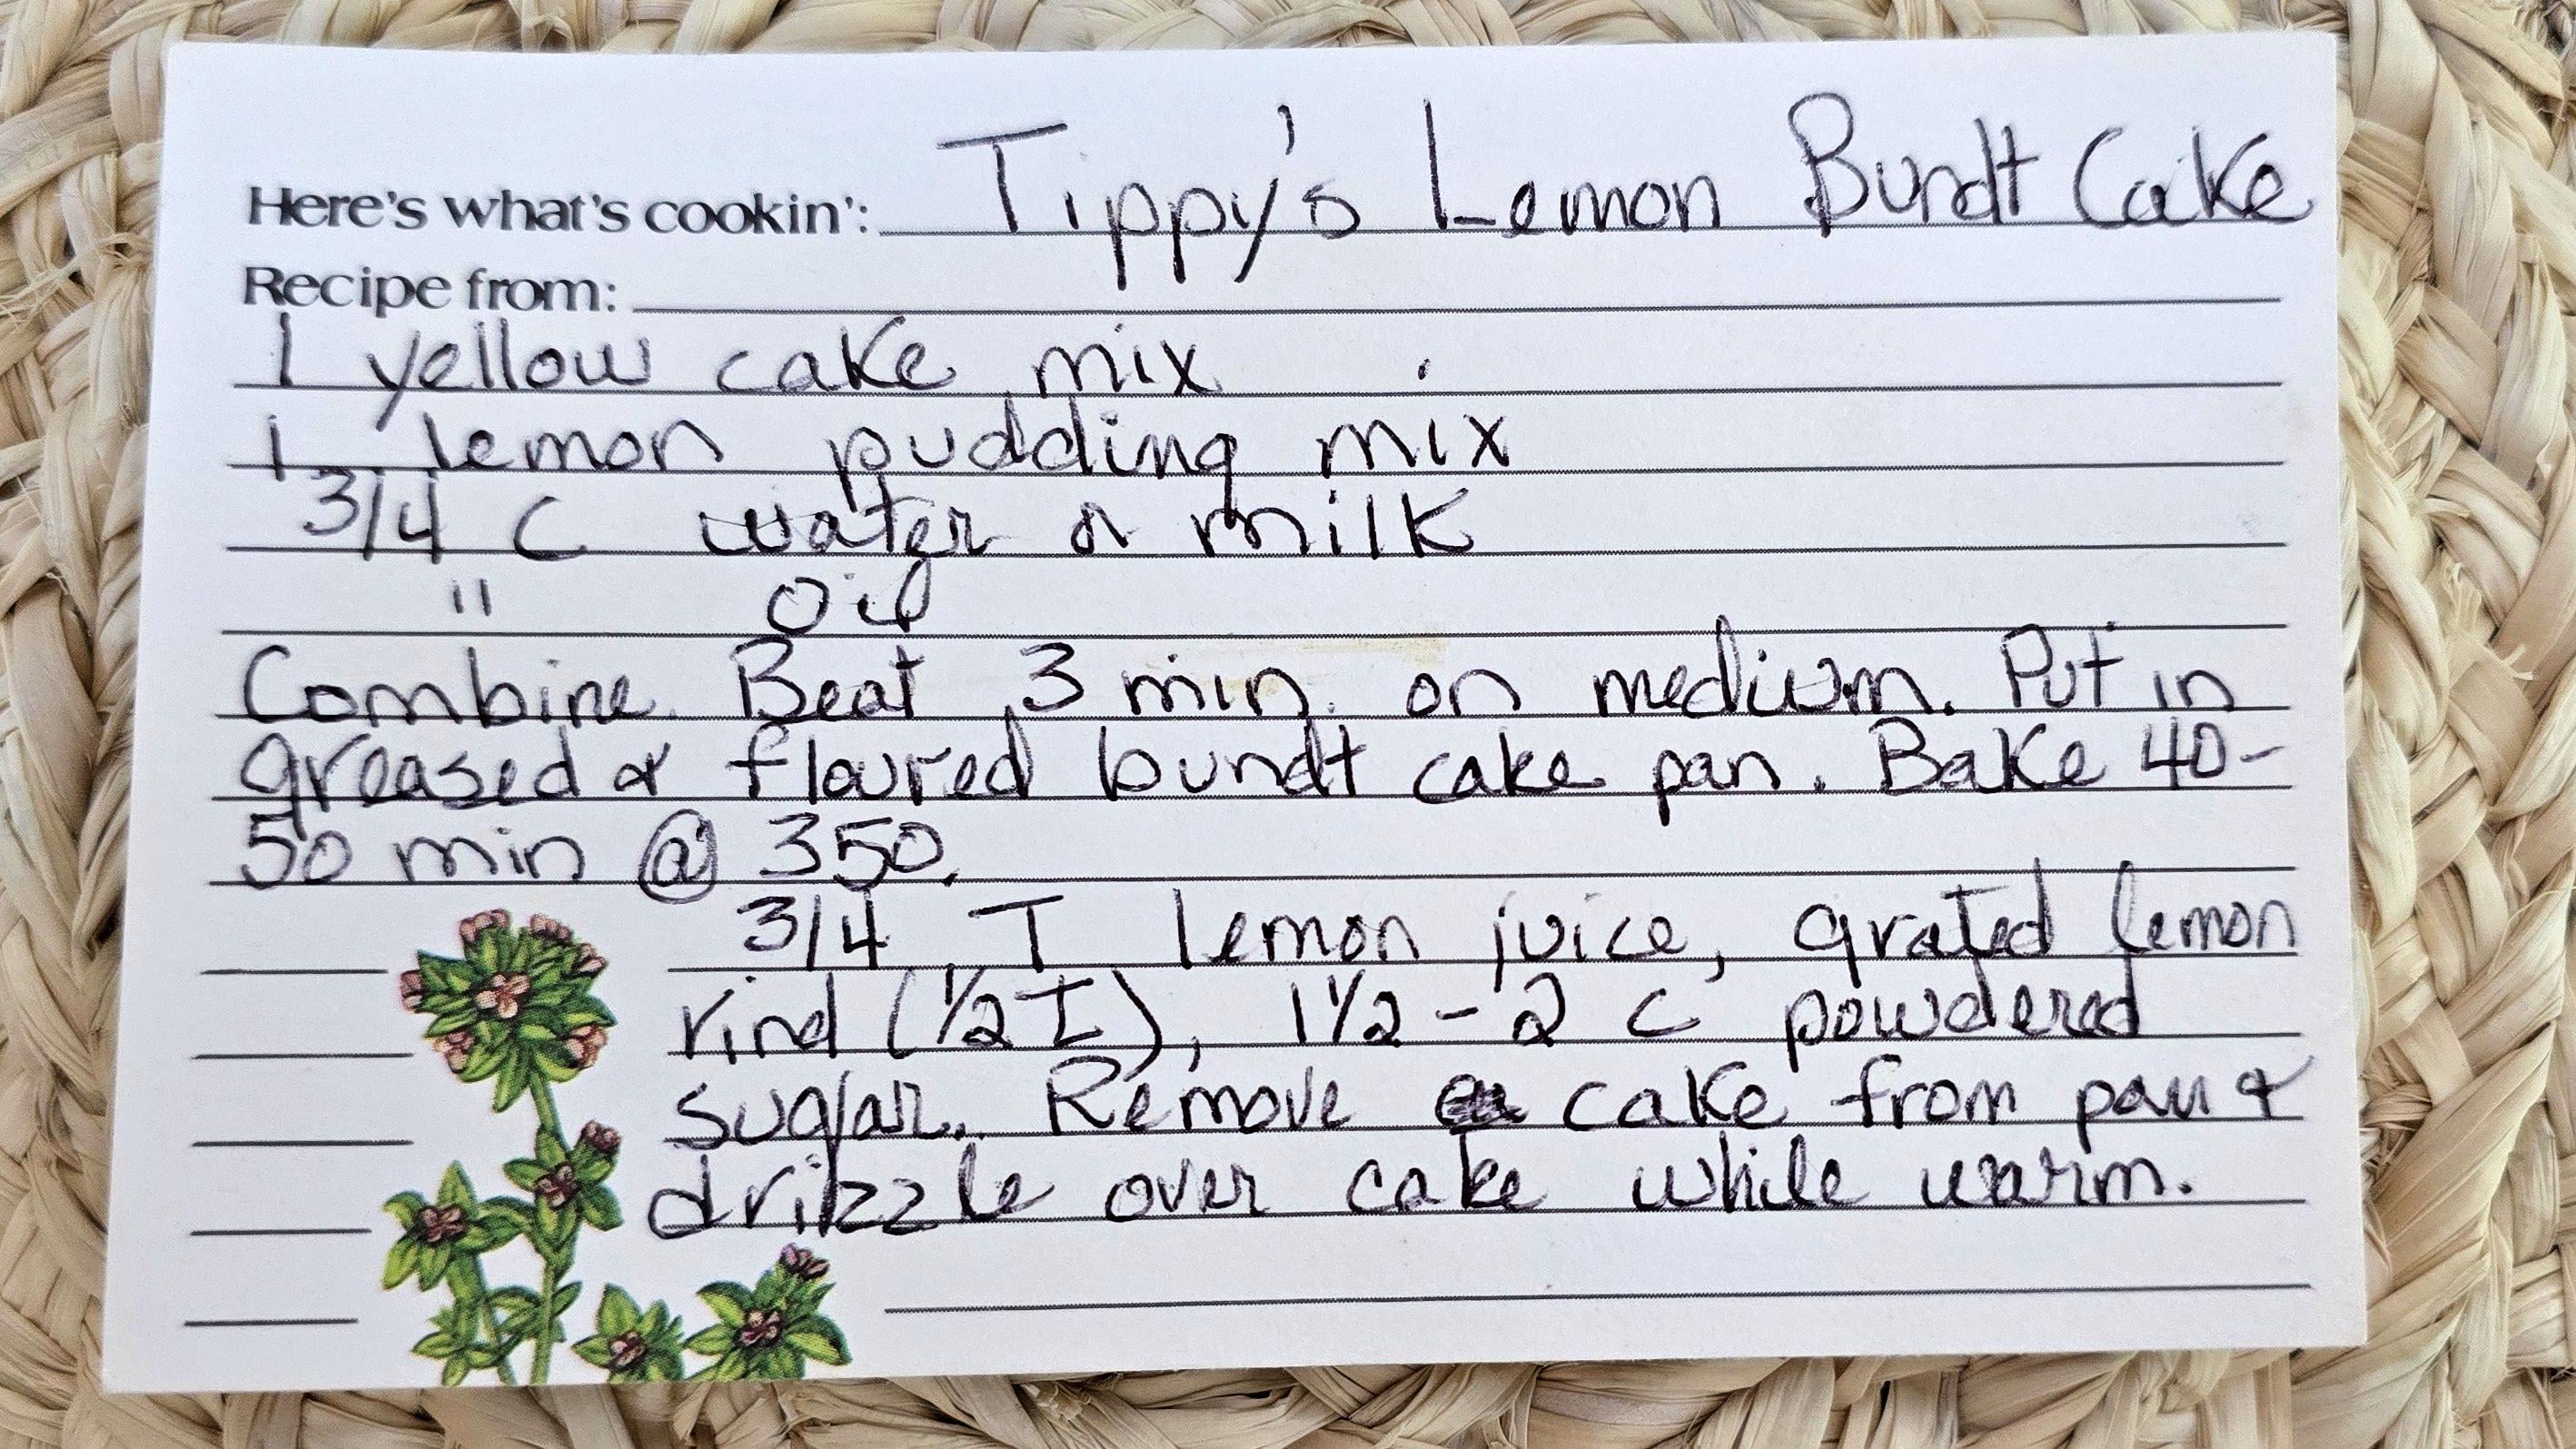 Here's what's cookin': Tippy's Lemon Bundt Cake
Recipe from:
1 yellow cake mix
1 lemon pudding mix
3/4 C water or milk
" Oil
Combine. Beat 3 min. on medium. Put in
greased & floured bundt cake pan. Bake 40-
50 min @ 350.
3/4 T lemon juice, grated lemon
rind (1/2 T), 1 1/2 - 2 C powdered
sugar. Remove cake from pan &
drizzle over cake while warm.